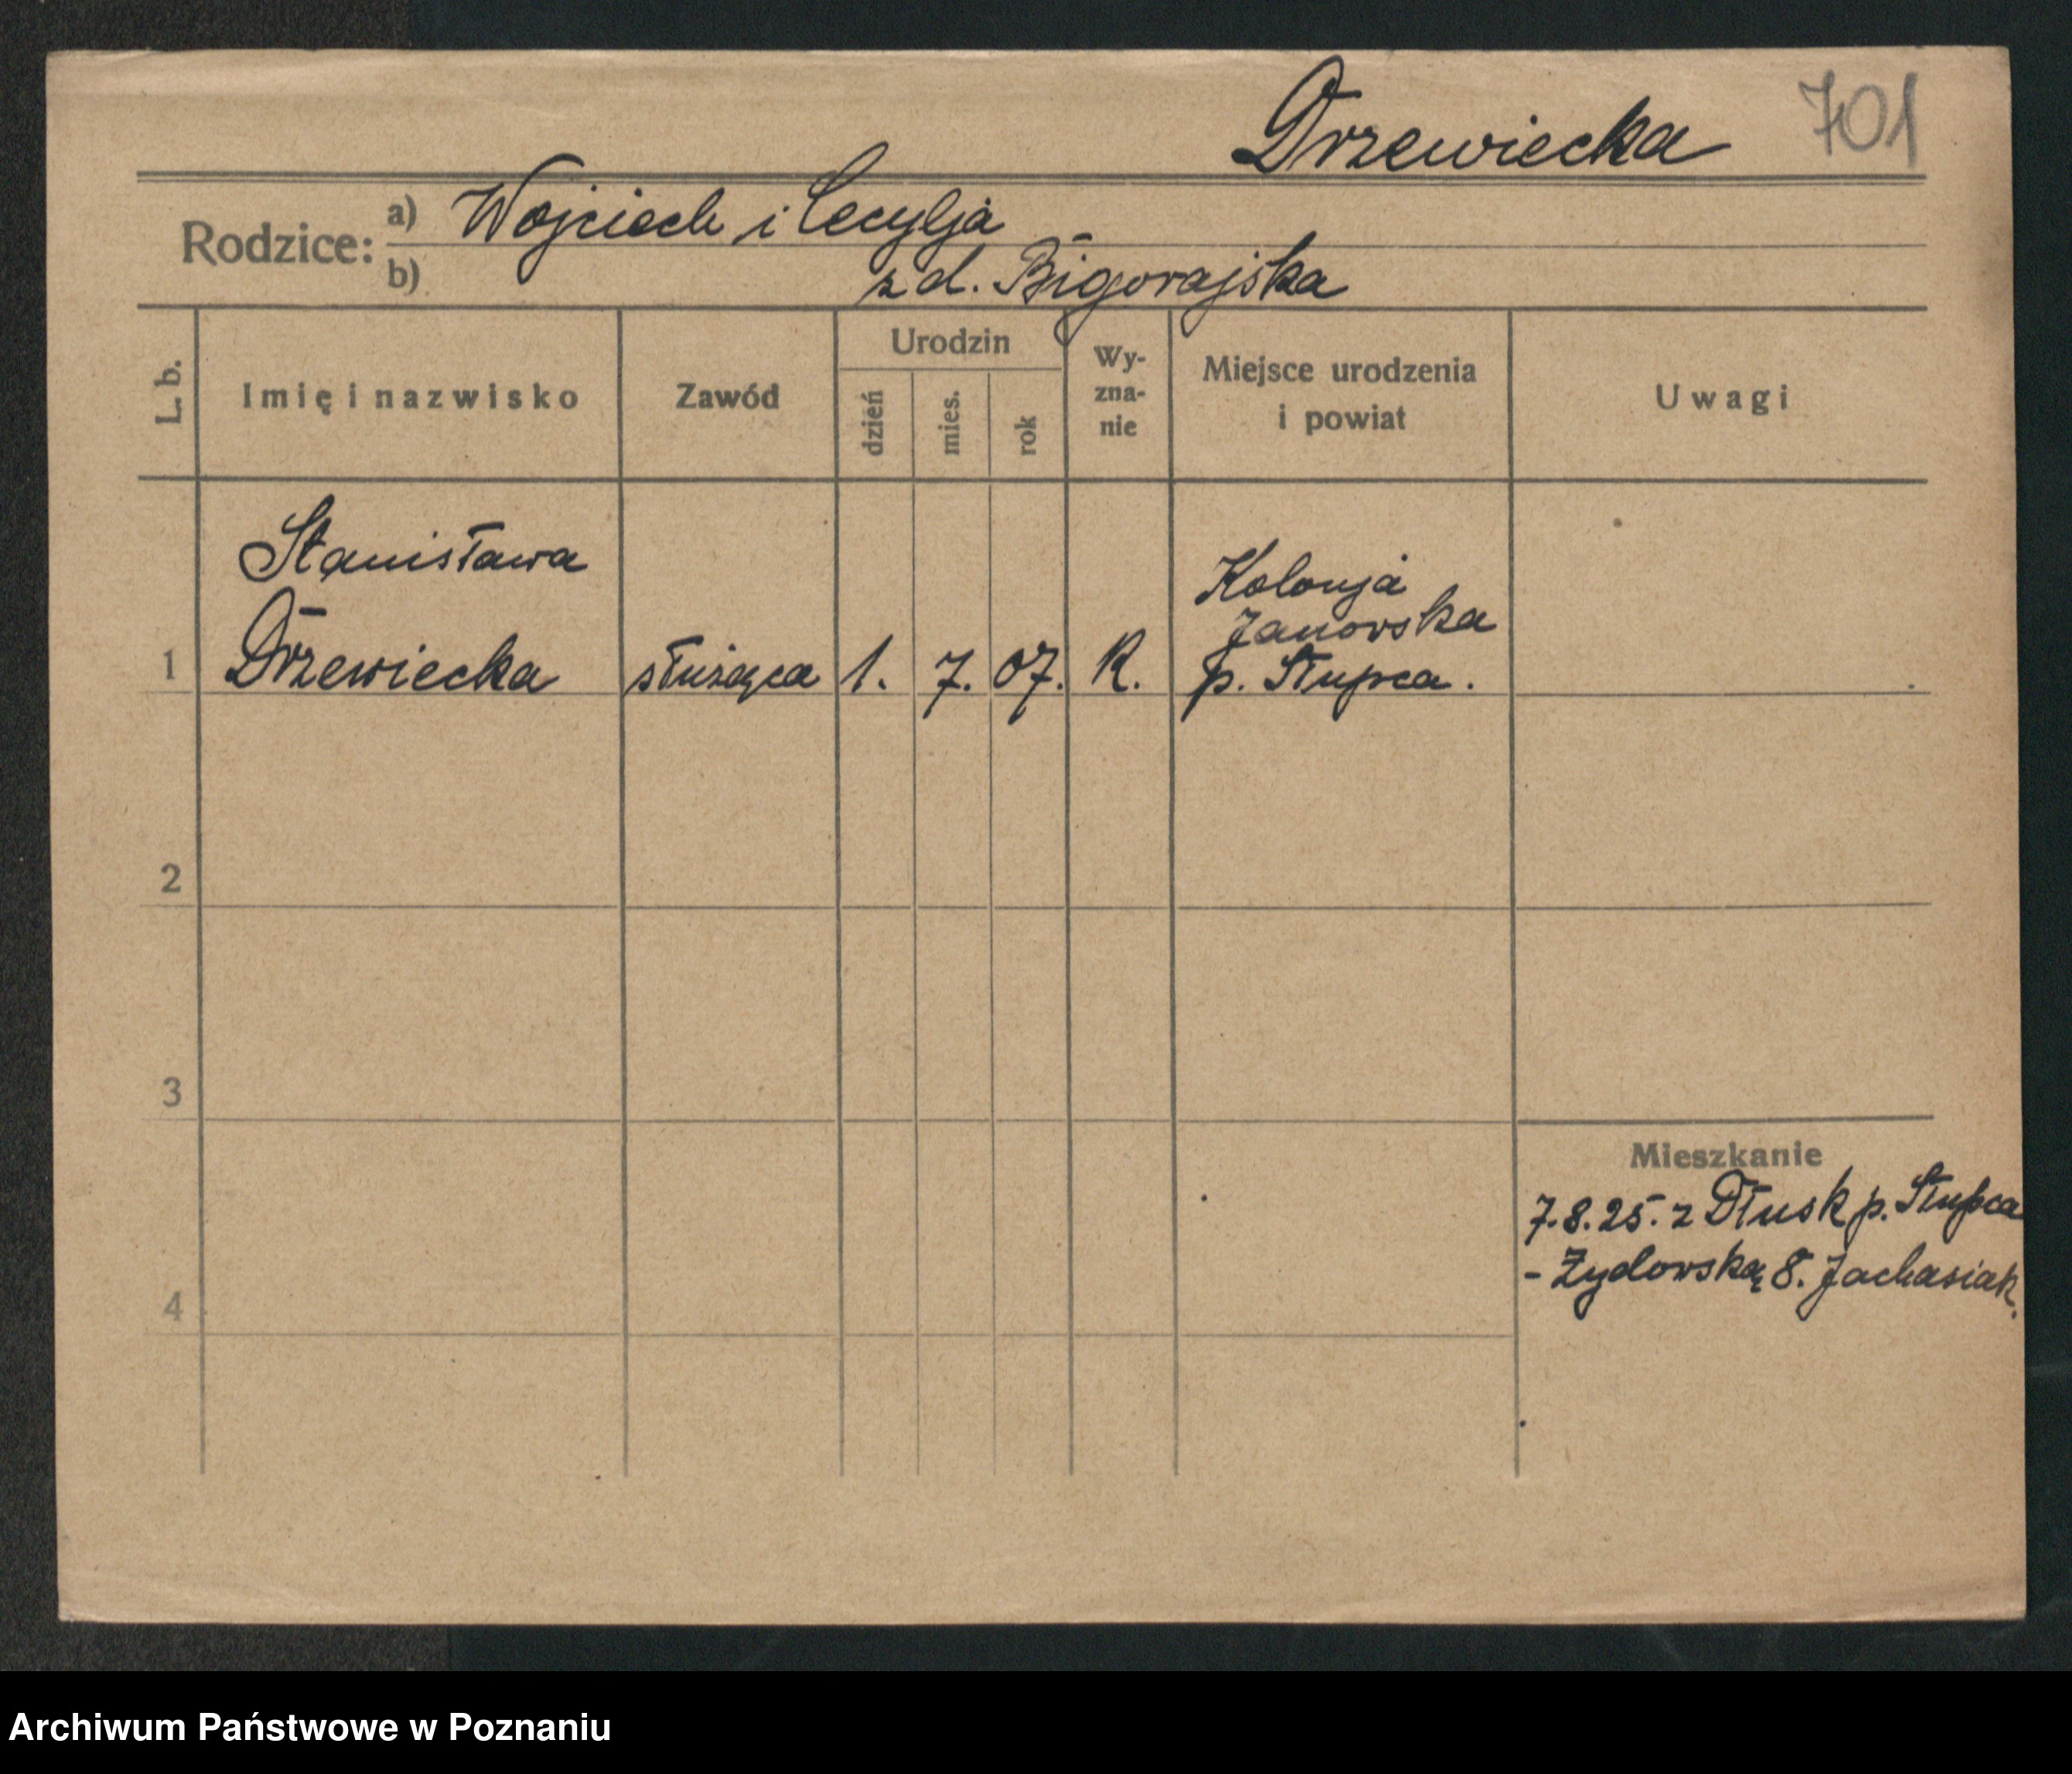 Drzewiecka 701
Rodzice: a) Wojciech i Cecylja
b) z d. Bigorajska
L. b.
Imię i nazwisko
Zawód
Urodzin
dzień
mies.
rok
Wy-
zna-
nie
Miejsce urodzenia
i powiat
Uwagi
Stanisława
Kolonja
Janowska
1 Drzewiecka służąca 1. 7. 07. R. p. Słupca.
2
3
Mieszkanie
7.8.25. z Dłusk p. Słupca
- Żydowską 8. Jachasiak.
4
Archiwum Państwowe w Poznaniu